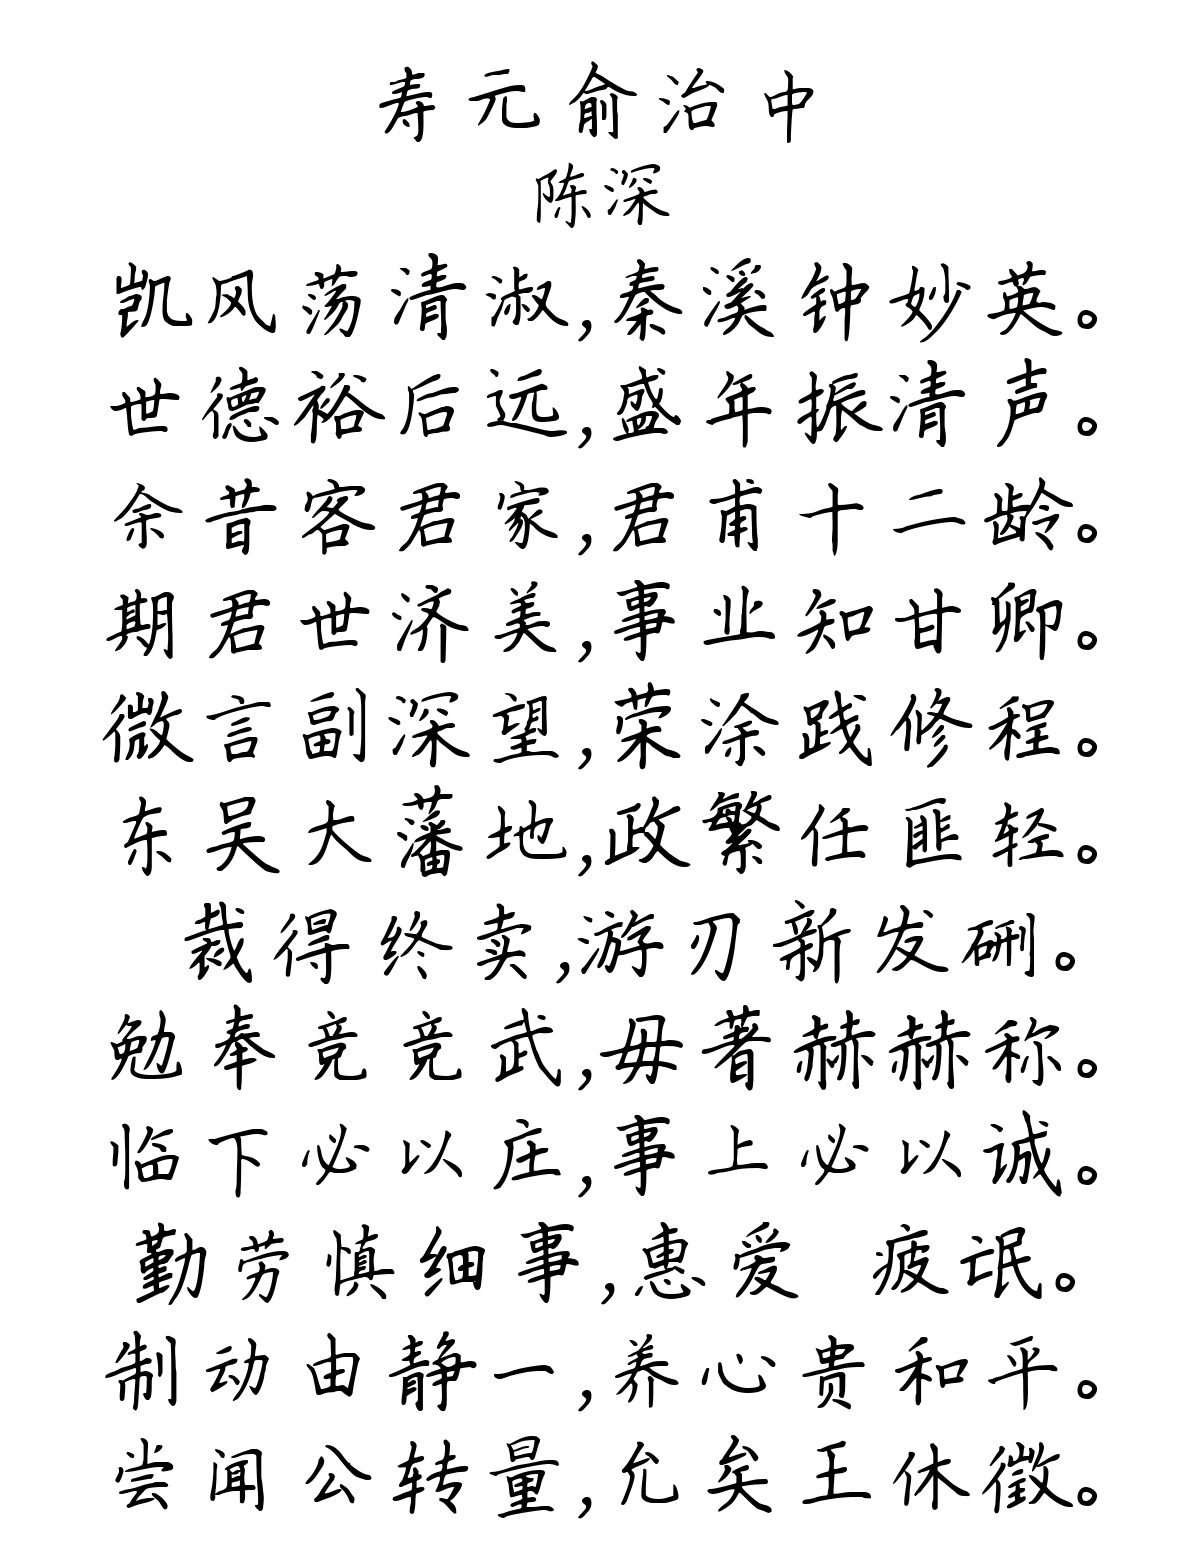 寿元俞治中
陈深
凯风荡清淑,秦溪钟妙英。
世德裕后远,盛年振清声。
余昔客君家,君甫十二龄。
期君世济美,事业知甘卿。
微言副深望,荣涂践修程。
东吴大藩地,政繁任匪轻。
裁得终卖,游刃新发硎。
勉奉竞竞武,毋著赫赫称。
临下必以庄,事上必以诚。
勤劳慎细事,惠爱 疲氓。
制动由静一,养心贵和平。
尝闻公转量,允矣王休徵。